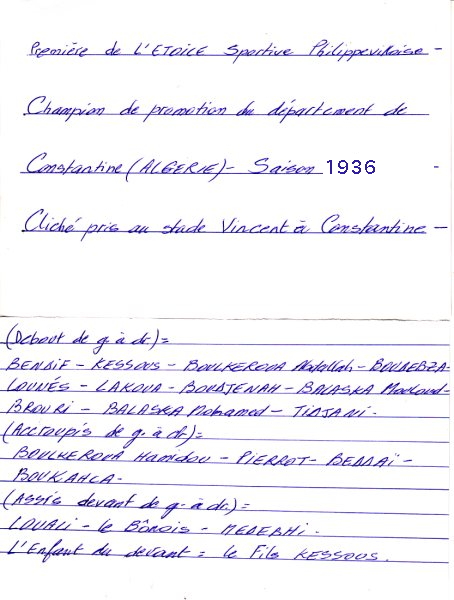 Première de L'ETOILE Sportive Philippevilloise -
Champion de promotion du département de
Constantine (ALGERIE) - Saison 1936 -
Cliché pris au stade Vincent à Constantine -
(Debout de g. à dr.) =
BENDIF - KESSOUS - BOULKEROUA Abdallah - BOUDEBZA -
LOUNÉS - LAKOUA - BOUDJENAH - BALASKA Mouloud -
BROURI - BALASKA Mohamed - TIDJANI.
(Accroupis de g. à dr.) =
BOULKEROUA Hamidou - PIERROT - BENDAÏ -
BOUKAHLA -
(Assis devant de g. à dr.) =
LOUALI - le Bônois - MEDEBHI.
L'Enfant du devant = le Fils KESSOUS.